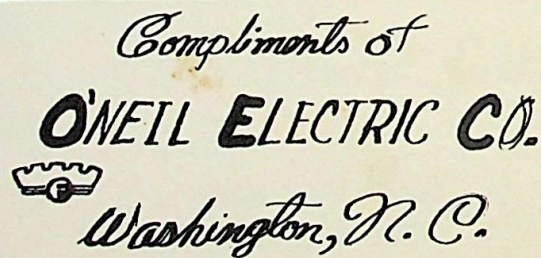 Compliments of
O'NEIL ELECTRIC CO.
F
Washington, N. C.